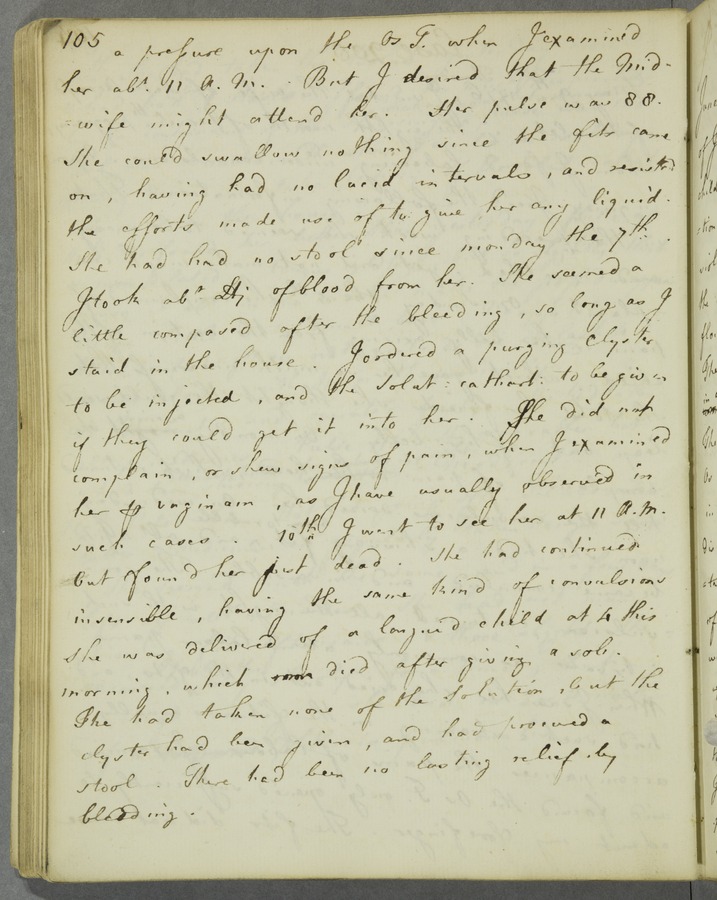 105
a pressure upon the Os T. when I examined
her abt. 11 A.M. But I desired that the Mid-
=wife might attend her. Her pulse was 88.
She could swallow nothing since the fits came
on, having had no lucid intervals, and resisted
the efforts made use of to give her any liquid.
She had had no stool since monday the 7th.
I took abt ℔j of blood from her. She seemed a
little composed after the bleeding, so long as I
staid in the house. I ordered a purging Clyster
to be injected, and the Solut: cathart: to be given
if they could get it into her. She did not
complain, or shew signs of pain, when I examined
her ꝑ vaginam, as I have usually observed in
such cases. 10th I went to see her at 11 A.M.
but found her just dead. She had continued
insensible, having the same kind of convulsions
She was delivered of a languid child at 4 this
morning, which died after giving a sob.
She had taken none of the Solution, but the
clyster had been given, and had procured a
stool. There had been no lasting relief by
bleeding.